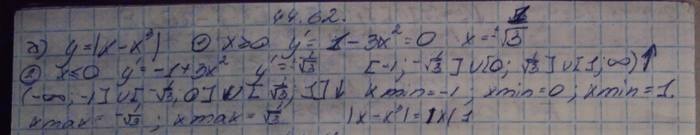 44.62.
а) y=|x-x³| ① x≥0 y'=1-3x²=0 x=±1/√3
② x≤0 y'=-1+3x² y'=±1/√3 [-1;-1/√3]∪[0;1/√3]∪[1;∞)↑
(-∞;-1]∪[-1/√3,0]∪[1/√3;1]↓ xmin=-1; xmin=0; xmin=1.
xmax=-1/√3; xmax=1/√3 |x-x³|=|x(1